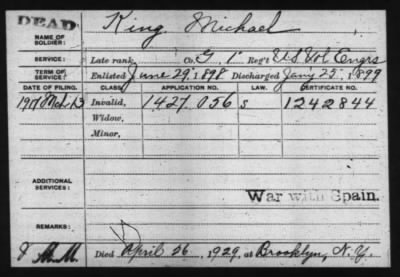 DEAD
NAME OF SOLDIER: King, Michael
SERVICE: Late rank, Co. G, 1" Reg't U.S. Vol. Engrs
TERM OF SERVICE: Enlisted June 29, 1898 Discharged Jan'y 25, 1899
DATE OF FILING. CLASS. APPLICATION NO. LAW. CERTIFICATE NO.
1917 Mch 13 Invalid, 1427.056 S 1242844
Widow,
Minor,
ADDITIONAL SERVICES:
War with Spain.
REMARKS:
Died April 26, 1929, at Brooklyn, N.Y.